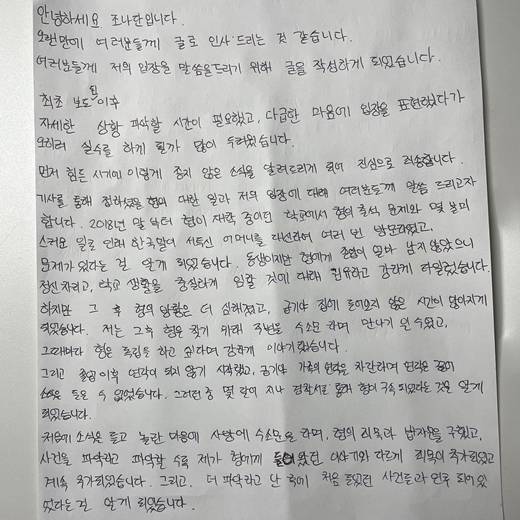 안녕하세요 조나단입니다.
오랜만에 여러분들께 글로 인사드리는 것 같습니다.
여러분들께 저의 입장을 말씀드리기 위해 글을 작성하게 되었습니다.
최초 보도된 이후
자세한 상황 파악할 시간이 필요했고, 다급한 마음에 입장을 표현하려다가
오히려 실수를 하게 될까 많이 두려웠습니다.
먼저 힘든 시기에 이렇게 좋지 않은 소식을 알려드리게 되어 진심으로 죄송합니다.
기사를 통해 접하셨을 형에 대한 일과 저의 입장에 대해 여러분들께 말씀 드리고자
합니다. 2018년 말 부터 형이 재학 중이던 학교에서 형의 출석 문제와 몇 불미
스러운 일로 인해 한국말이 서투신 어머니를 대신하여 여러 번 방문하였고,
문제가 있다는 걸 알게 되었습니다. 동생이지만 형에게 졸업이 얼마 남지 않았으니
정신 차리고, 학교 생활을 충실하게 임할 것에 대해 권유하고 강하게 타일렀습니다.
하지만 그 후 형의 방황은 더 심해졌고, 급기야 집에 들어오지 않은 시간이 많아지게
되었습니다. 저는 그후 형을 찾기 위해 주변을 수소문 하며 만나기 원했고,
그때마다 형은 독립을 하고 싶다며 강하게 이야기했습니다.
그리고 독립이후 연락이 되지 않기 시작했고, 급기야 가족의 연락을 차단하며 연락은
소식을 들을 수 없었습니다. 그러던 중 몇 달이 지나 경찰서를 통해 형이 구속 되었다는 것을 알게
되었습니다.
처음에 소식을 듣고 놀란 마음에 사방에 수소문을 하며, 형의 죄목과 법자문을 구했고,
사건을 파악하고 파악할 수록 제가 형에게 들어왔던 이야기와 다르게 죄목이 추가되었고
계속 추가되었습니다. 그리고, 더 파악하고 난 후에 처음 들었던 사건들과 연루 되어있
었다는걸 알게 되었습니다.